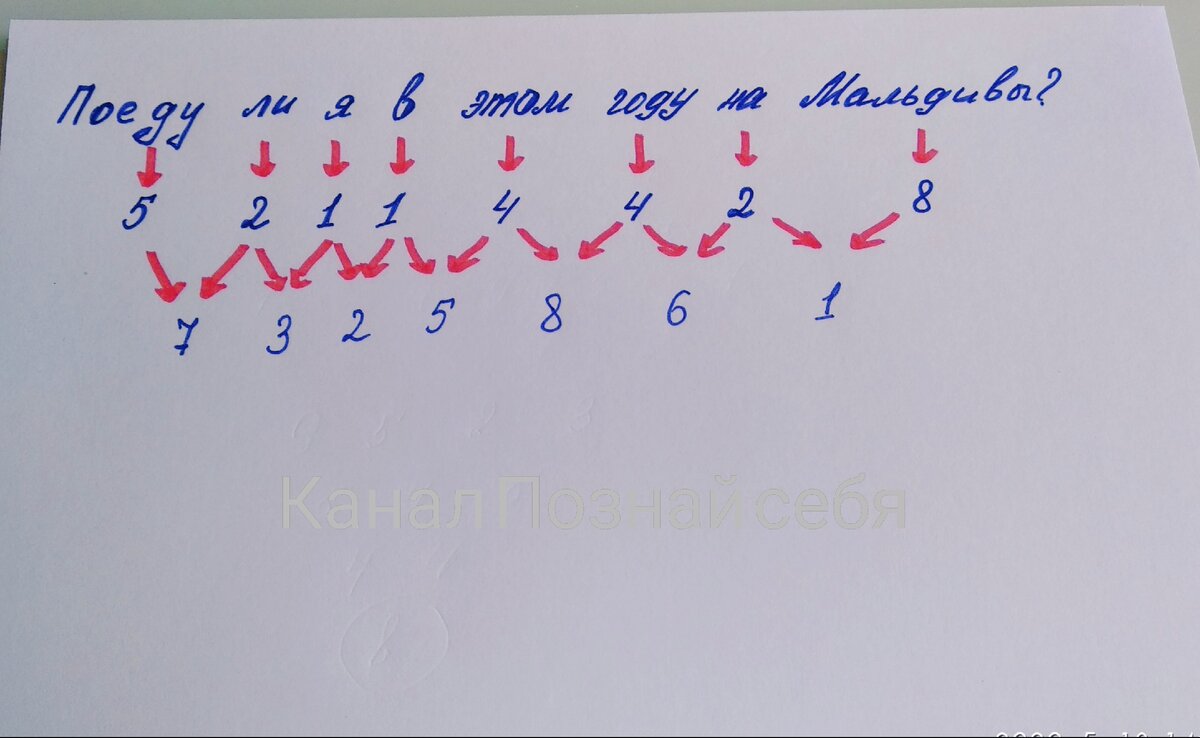 Поеду ли я в этом году на Мальдивы?
5 2 1 1 4 4 2 8
7 3 2 5 8 6 1
Канал Познай себя